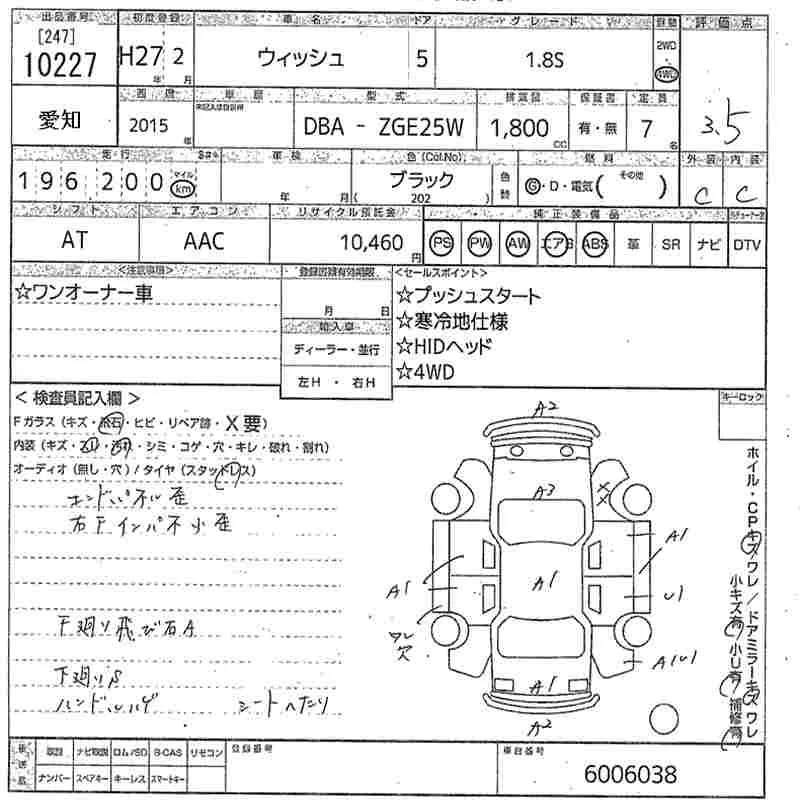 出品番号 初度登録 車名 ドア グレード 駆動 評価点
[247]
10227 H27年 2月 ウィッシュ 5 1.8S 2WD 4WD 3.5
愛知
西暦 車歴 型式 排気量 保証書 定員
2015年 DBA - ZGE25W 1,800CC 有・無 7名
走行 車検 色(Col.No) 燃料 外装 内装
196,200 マイル km 年 月 ブラック (202) 色替 G・D・電気( その他 ) C C
シフト エアコン リサイクル預託金 純正装備品
AT AAC 10,460円 PS PW AW エアB ABS 革 SR ナビ DTV
<注意事項> 登録名義有効期限 <セールスポイント>
☆ワンオーナー車 ☆プッシュスタート
月 日 ☆寒冷地仕様
輸入車 ☆HIDヘッド
ディーラー・並行 ☆4WD
左H ・ 右H
< 検査員記入欄 > キーロック
Fガラス(キズ・飛石・ヒビ・リペア跡・X要)
内装(キズ・スレ・汚れ・シミ・コゲ・穴・キレ・破れ・割れ)
オーディオ(無し・穴)/タイヤ(スタッドレス)
エンドパネル歪
右Fインパネ小歪
下廻り飛び石A
下廻りS
ハンドルハゲ シートへたり
A2
A3
XX
A1
A1
A1
U1
ワレ
欠
A1U1
A1
A2
ホイル・CPキズワレ/ドアミラーキズワレ
小キズ有 小U有 補修有
取説 ナビ取説 ロム/SD B-CAS リモコン 登録番号 車台番号
ナンバー スペアキー キーレス スマートキー 6006038